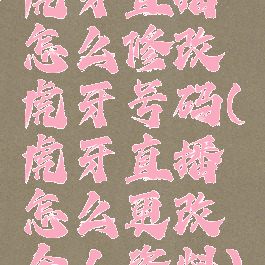 虎牙直播
怎么修改
虎牙号码(
虎牙直播
怎么更改
怎么资料)